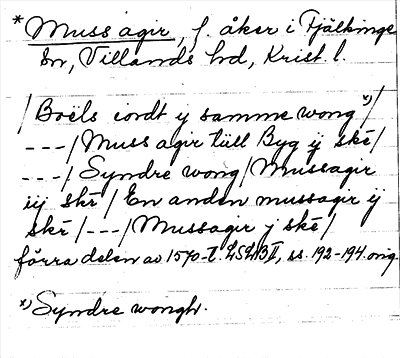 * Muss agir, f. åker i Fjälkinge
sn, Villands hd, Krist. l.
/ Boëls iordt ÿ samme wong x)/
---/ Muss agir tüll Byg ÿ skē/
---/ Syndre wong / Mussagir
iij skē / En anden mussagir ÿ
skē /---/ Mussagir j skē /
förra delen av 1570-t. LSLB II, ss. 192-194. orig.
x) Syndre wongh.